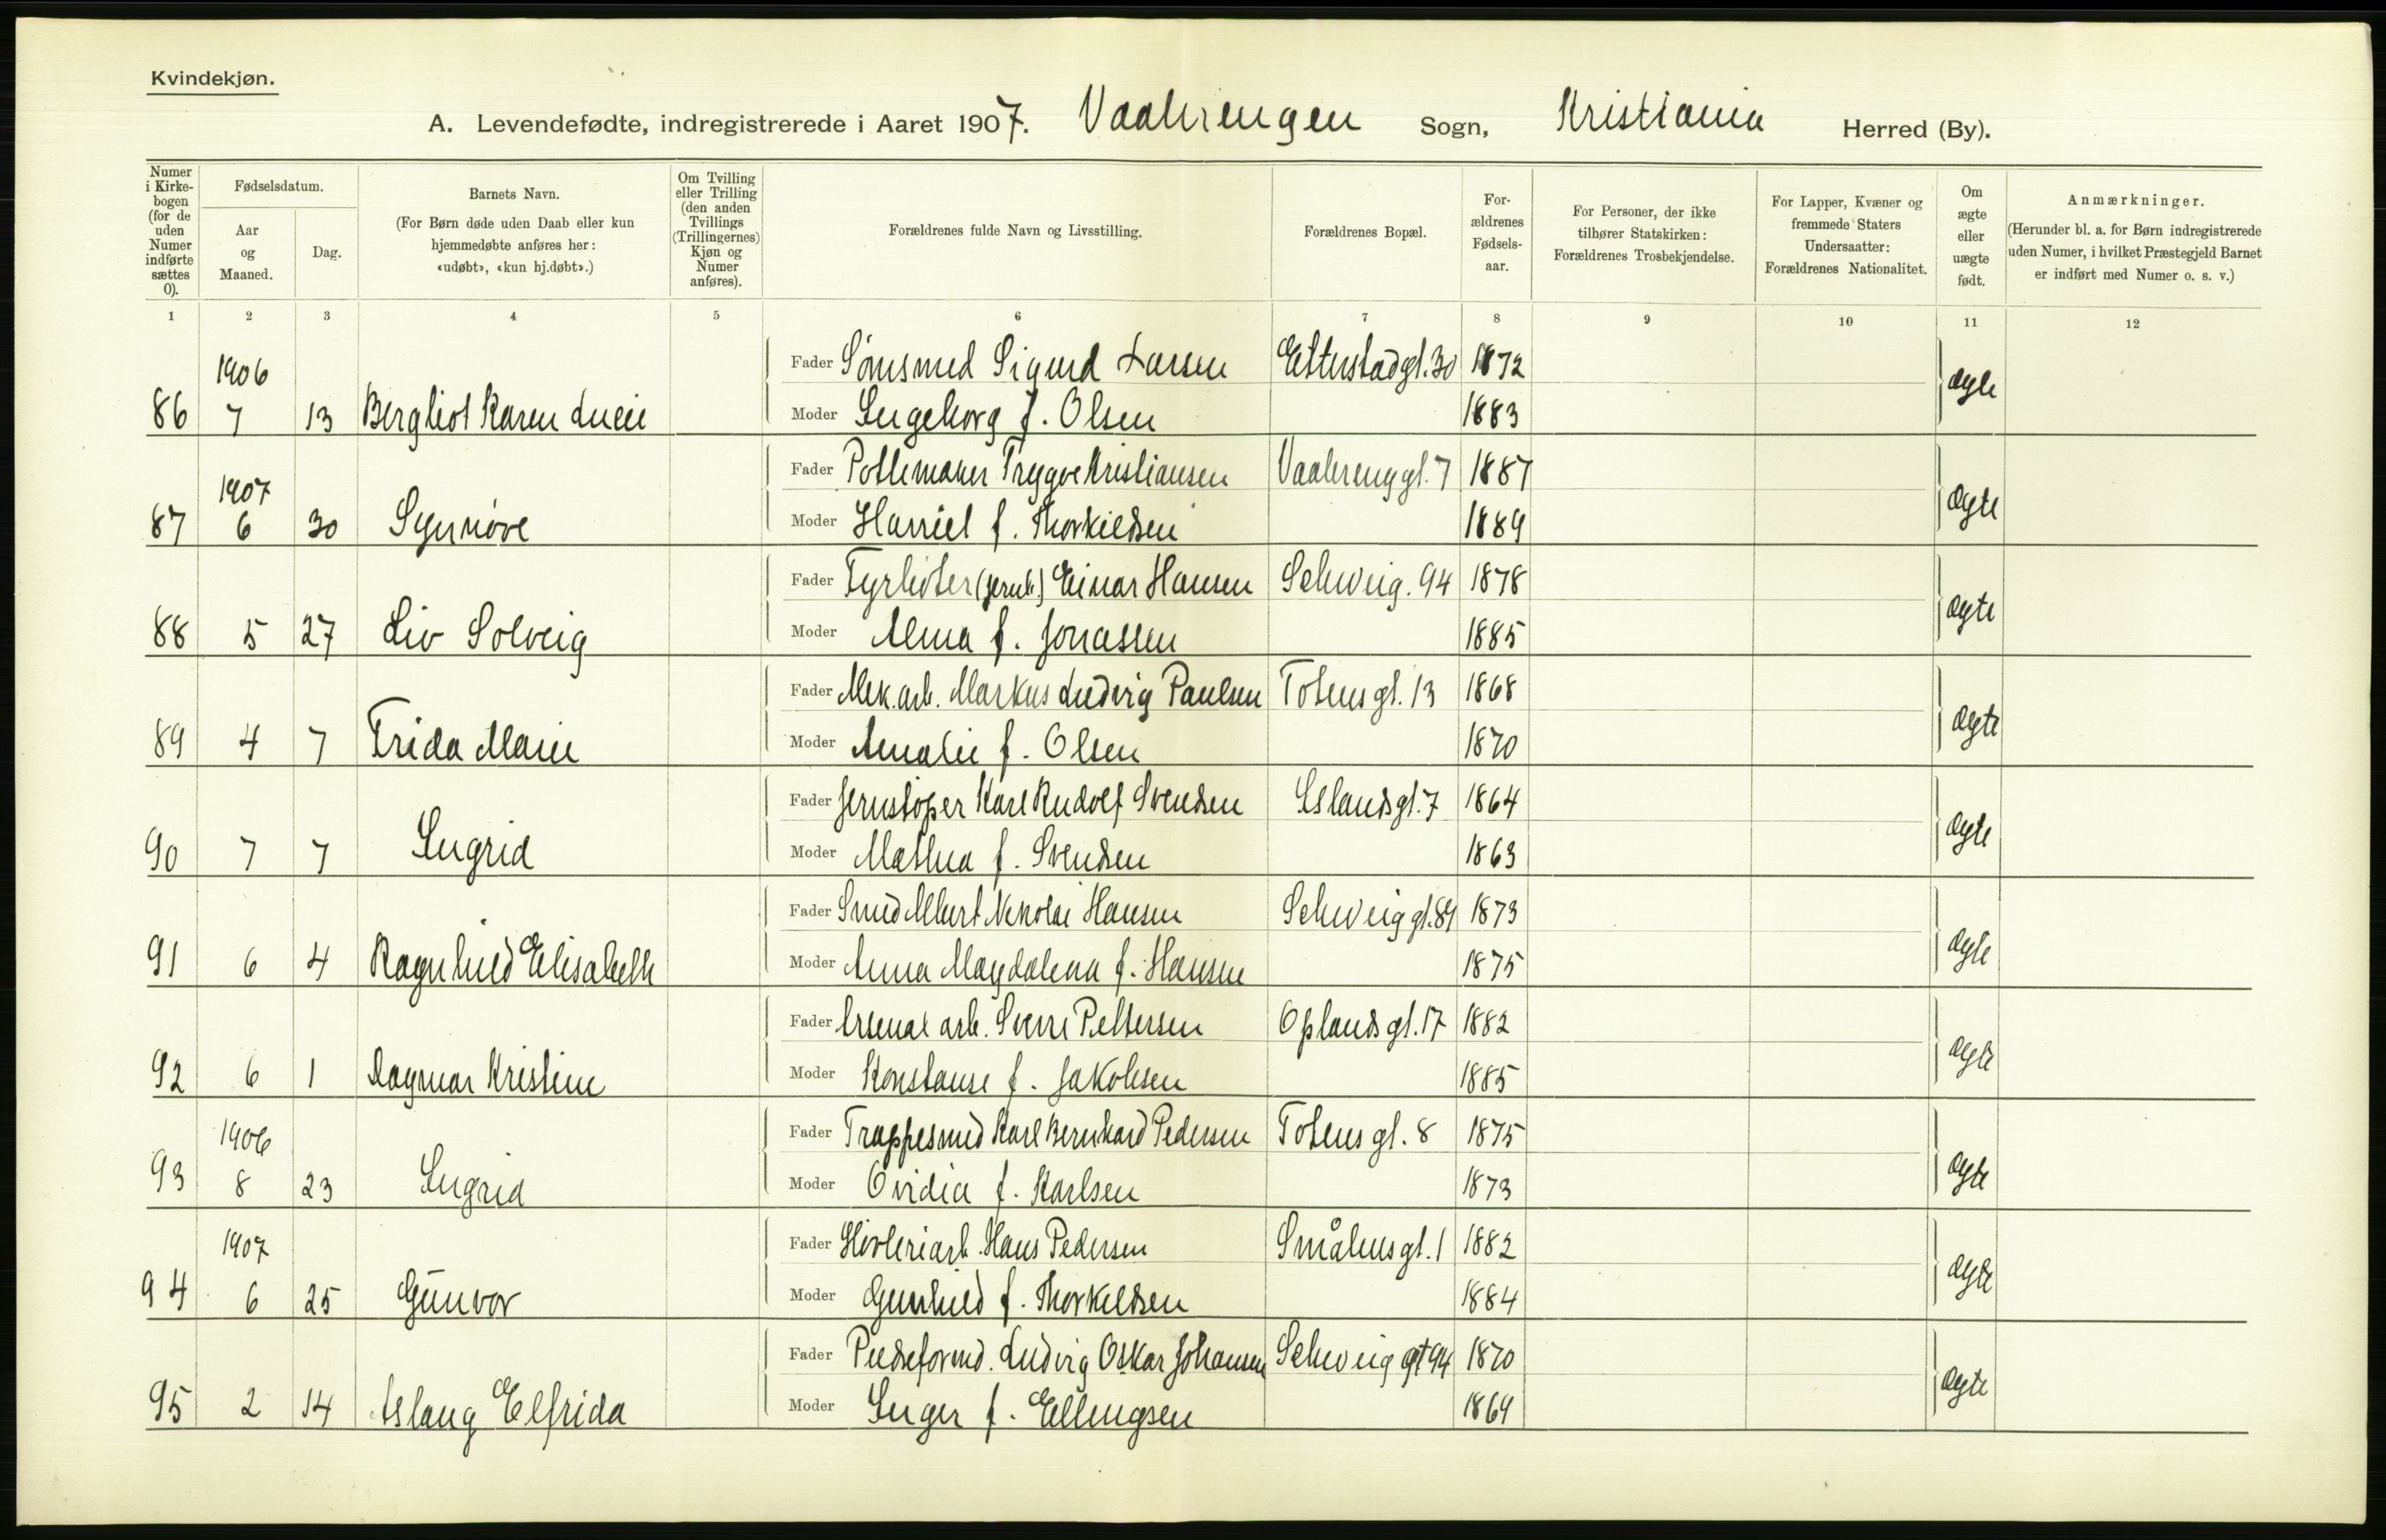 Kvindekjøn.
A. Levendefødte, indregistrerede i Aaret 1907. Vaalerengen Sogn, Kristiania Herred (By).
Numer i Kirkebogen (for de uden Numer indførte sættes 0).
Fødselsdatum.
Aar og Maaned.
Dag.
Barnets Navn.
(For Børn døde uden Daab eller kun hjemmedøbte anføres her: «udøbt», «kun hj.døbt».)
Om Tvilling eller Trilling (den anden Tvillings (Trillingernes) Kjøn og Numer anføres).
Forældrenes fulde Navn og Livsstilling.
Forældrenes Bopæl.
Forældrenes Fødselsaar.
For Personer, der ikke tilhører Statskirken: Forældrenes Trosbekjendelse.
For Lapper, Kvæner og fremmede Staters Undersaatter: Forældrenes Nationalitet.
Om ægte eller uægte født.
Anmærkninger.
(Herunder bl. a. for Børn indregistrerede uden Numer, i hvilket Præstegjeld Barnet er indført med Numer o. s. v.)
1 2 3 4 5 6 7 8 9 10 11 12
1906 Fader Sigurd Larsen Etterstadgt. 30 1872 ægte
86 7 13 Bergliot Karen Lucie Moder Ingeborg f. Olsen 1883
1907 Fader Pottemaker Trygve Kristiansen Vaalerenggt. 7 1887 ægte
87 6 30 Synnøve Moder Harriet f. Thorkildsen 1889
Fader Fyrbøter (jernb.) Einar Hansen Schweig. 94 1878 ægte
88 5 27 Liv Solveig Moder Alma f. Jonassen 1885
Fader Mek. arb. Markus Ludvig Paulsen Totensgt. 13 1868 ægte
89 4 7 Frida Marie Moder Amalie f. Olsen 1870
Fader Jernstøper Karl Rudolf Svendsen Islandsgt. 7 1864 ægte
90 7 7 Ingrid Moder Mathea f. Svendsen 1863
Fader Smed Albert Nikolai Hansen Schweiggt. 89 1873 ægte
91 6 4 Ragnhild Elisabeth Moder Anna Magdalena f. Hansen 1875
Fader Arsenal arb. Sverre Pettersen Oplandsgt. 17 1882 ægte
92 6 1 Dagmar Kristine Moder Konstanse f. Jakobsen 1885
1906 Fader Trappesmed Karl Bernhard Pedersen Totensgt. 8 1875 ægte
93 8 23 Ingrid Moder Ovidia f. Karlsen 1873
1907 Fader Høvleriarb. Hans Pedersen Småhusgt. 1 1882 ægte
94 6 25 Gunvor Moder Gunhild f. Thorkildsen 1884
Fader Ludvig Oskar Johansen Schweiggt 94 1870 ægte
95 2 14 Aslaug Elfrida Moder Inger f. Ellingsen 1869